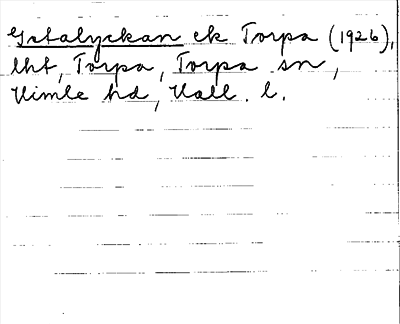 Götalyckan ek Torpa (1926),
lht, Torpa, Torpa sn,
Kimle hd, Hall. l.